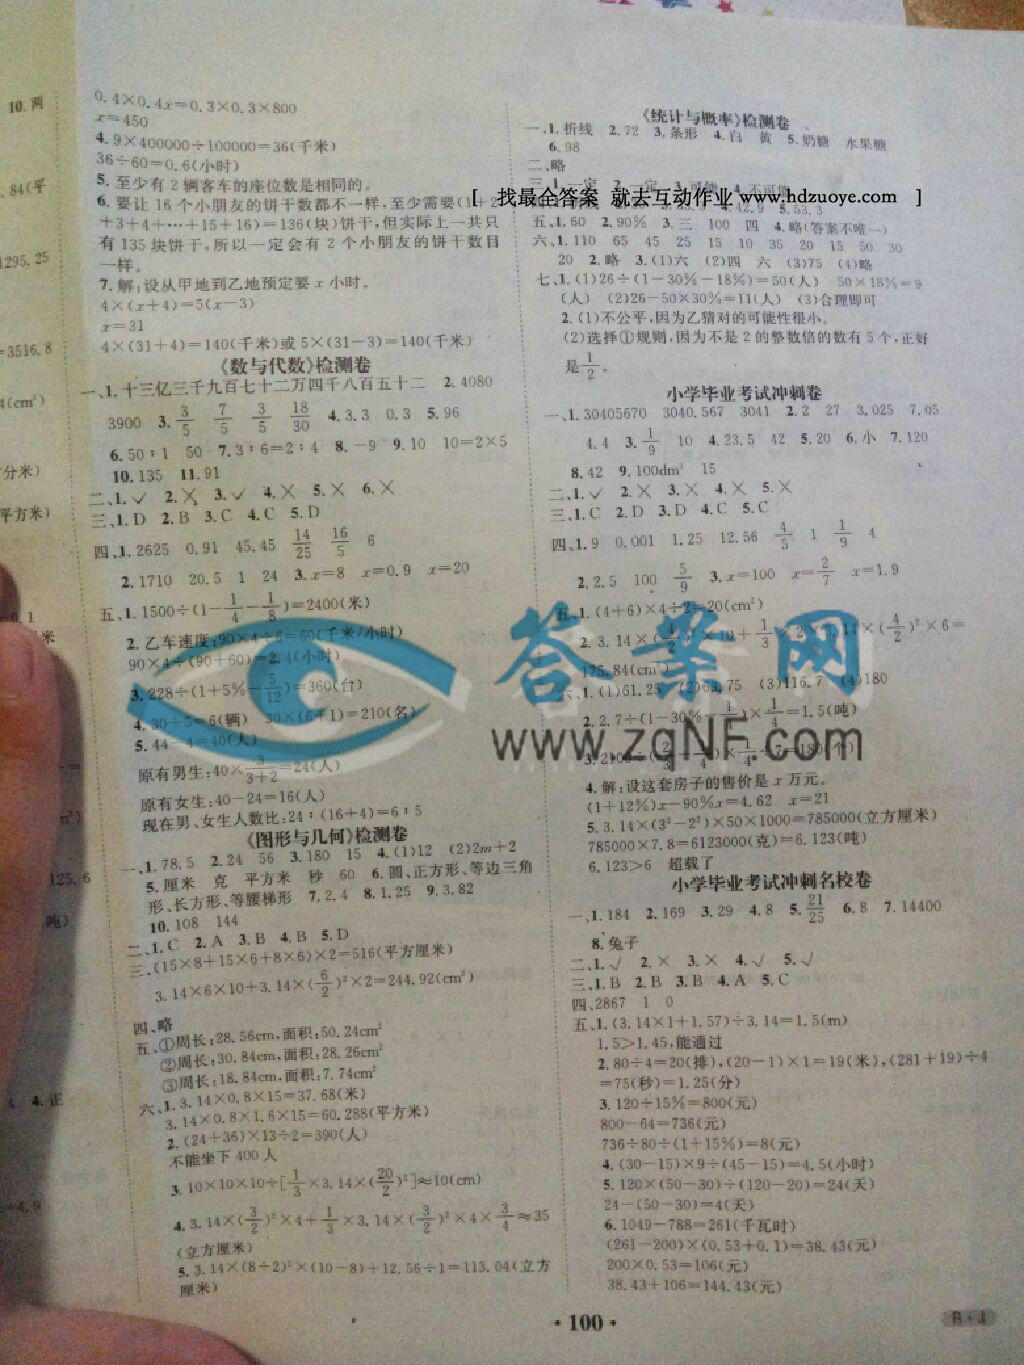 10.两
84(平
1295.25
=3516.8
4(cm²)
分米)
平方米)
0.1
125.6
吨)
4.正
=4.9
0.4×0.4x=0.3×0.3×800
x=450
4.9×400000÷100000=36(千米)
36÷60=0.6(小时)
5.至少有2辆客车的座位数是相同的。
6.要让16个小朋友的饼干数都不一样,至少需要(1+2
+3+4+…+15+16)=136(块)饼干,但实际上一共只
有135块饼干,所以一定会有2个小朋友的饼干数目
一样。
7.解:设从甲地到乙地预定要x小时。
4×(x+4)=5(x-3)
x=31
4×(31+4)=140(千米)或5×(31-3)=140(千米)
《数与代数》检测卷
一、1.十三亿三千九百七十二万四千八百五十二 2.4080
3900 3.3/5 7/5 3/5 18/30 4.3.3 0.3 5.96
6.50:1 50 7.3:6=2:4 8.-9 9.10 10=2×5
10.135 11.91
二、1.√ 2.× 3.√ 4.× 5.× 6.×
三、1.D 2.B 3.C 4.C 5.D
四、1.2625 0.91 45.45 14/25 16/5 6
2.1710 20.5 1 24 3.x=8 x=0.9 x=20
五、1.1500÷(1-1/4-1/8)=2400(米)
2.乙车速度:90×4÷6=60(千米/小时)
90×4÷(90+60)=2.4(小时)
3.228÷(1+5%-5/12)=360(台)
4.30÷5=6(辆) 30×(6+1)=210(名)
5.44-4=40(人)
原有男生:40×3/(3+2)=24(人)
原有女生:40-24=16(人)
现在男、女生人数比:24:(16+4)=6:5
《图形与几何》检测卷
一、1.78.5 2.24 56 3.180 15 4.(1)12 (2)2m+2
5.厘米 克 平方米 秒 60 6.圆、正方形、等边三角
形、长方形、等腰梯形 7.2.4 8.1.25 9.3.82
10.108 144
二、1.C 2.A 3.B 4.B 5.D
三、(15×8+15×6+8×6)×2=516(平方厘米)
3.14×6×10+3.14×(6/2)²×2=244.92(cm²)
四、略
五、①周长:28.56cm,面积:50.24cm²
②周长:30.84cm,面积:28.26cm²
③周长:18.84cm,面积:7.74cm²
六、1.3.14×0.8×15=37.68(米)
3.14×0.8×1.6×15=60.288(平方米)
2.(24+36)×13÷2=390(人)
不能坐下400人
3.10×10×10÷[1/3×3.14×(20/2)²]≈10(cm)
4.3.14×(3/2)²×4+1/3×3.14×(3/2)²×4×3/4≈35
(立方厘米)
5.3.14×(8÷2)²×(10-8)+12.56÷1=113.04(立方
厘米)
《统计与概率》检测卷
一、1.折线 2.72 3.条形 4.白 黄 5.奶糖 水果糖
6.98
二、略
三、1.一定 2.一定 3.可能 4.不可能
[ 找最全答案 就去互动作业 www.hdzuoye.com ]
4.42.9 5.53.3
五、1.60 2.90% 3.三 100 四 4.略(答案不唯一)
六、1.110 65 45 25 15 10 35 20 15 50 30
20 2.略 3.(1)六 (2)四 六 (3)75 (4)略
七、1.(1)26÷(1-30%-18%)=50(人) 50×18%=9
(人) (2)26-50×30%=11(人) (3)合理即可
2.(1)不公平,因为乙猜对的可能性很小。
(2)选择①规则,因为不是2的整数倍的数有5个,正好
是1/2。
小学毕业考试冲刺卷
一、1.30405670 3040.567 3041 2.2 27 3.025 7.05
4.4 3.1/9 10 4.23.5 42 5.20 6.小 7.120
8.42 9.100dm³ 15
二、1.√ 2.× 3.× 4.× 5.×
三、1.C 2.D 3.D 4.C 5.C
四、1.9 0.001 1.25 12.56 4/5 1 1/9 4
2.2.5 100 5/9 3.x=100 x=2/7 x=1.9
五、1.(4+6)×4÷2=20(cm²)
2.3.14×(4/2)²×10+1/3×3.14×(4/2)²×6=
175.84(cm³)
六、1.(1)61.25 (2)63.75 (3)116.7 (4)180
2.2.7÷(1-30%-1/4)×1/4=1.5(吨)
4.解:设这套房子的售价是x万元。
(1+12%)x-90%x=4.62 x=21
5.3.14×(3²-2²)×50×1000=785000(立方厘米)
785000×7.8=6123000(克)=6.123(吨)
6.123>6 超载了
小学毕业考试冲刺名校卷
一、1.184 2.169 3.29 4.8 5.21/25 6.8 7.14400
8.兔子
二、1.√ 2.× 3.× 4.√ 5.√
三、1.B 2.B 3.B 4.A 5.C
四、2867 1 0
五、1.(3.14×1+1.57)÷3.14=1.5(m)
1.5>1.45,能通过
2.80÷4=20(排),(20-1)×1=19(米),(281+19)÷4
=75(秒)=1.25(分)
3.120÷15%=800(元)
800-64=736(元)
736÷80÷(1+15%)=8(元)
4.(30-15)×9÷(45-15)=4.5(小时)
5.120×(50-30)÷(120-20)=24(天)
24-(50-30)=4(天)
6.1049-788=261(千瓦时)
(261-200)×(0.53+0.1)=38.43(元)
200×0.53=106(元)
38.43+106=144.43(元)
答案网
www.zqNF.com
·100·
B·4